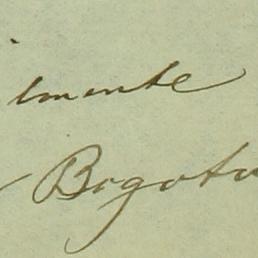 lmente
Bogota